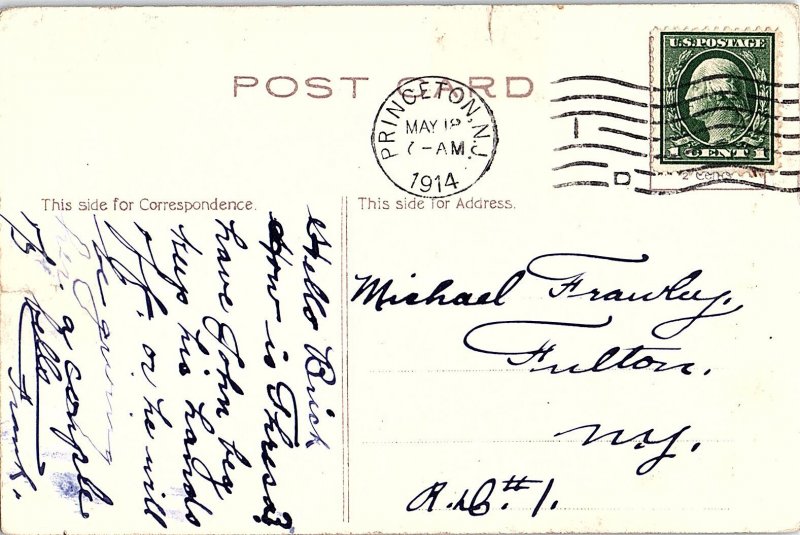 POST CARD
PRINCETON, N.J.
MAY 18
7-AM
1914
U.S. POSTAGE
1 CENT 1
D
This side for Correspondence.
Hello Brick
How is Thresa?
have John
keep his hands
off. or he will
be
her a couple
Frank.
This side for Address.
Michael Frawley.
Fulton.
N.Y.
R.D. #1.